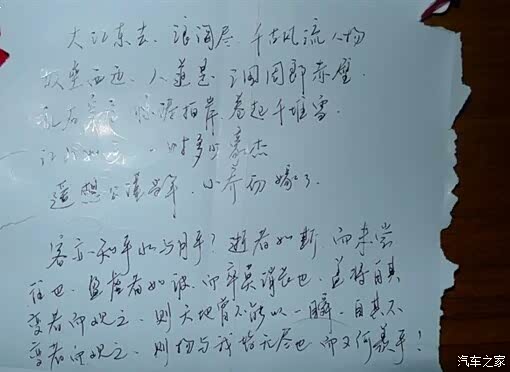 大江东去，浪淘尽，千古风流人物
故垒西边，人道是，三国周郎赤壁．
乱石穿空 惊涛拍岸 卷起千堆雪．
江山如画 一时多少豪杰
遥想公瑾当年，小乔初嫁了．
客亦知乎水与月乎？逝者如斯，而未尝
往也，盈虚者如彼，而卒莫消长也，盖将自其
变者而观之，则天地曾不能以一瞬，自其不
变者而观之，则物与我皆无尽也 而又何羡乎！
汽车之家